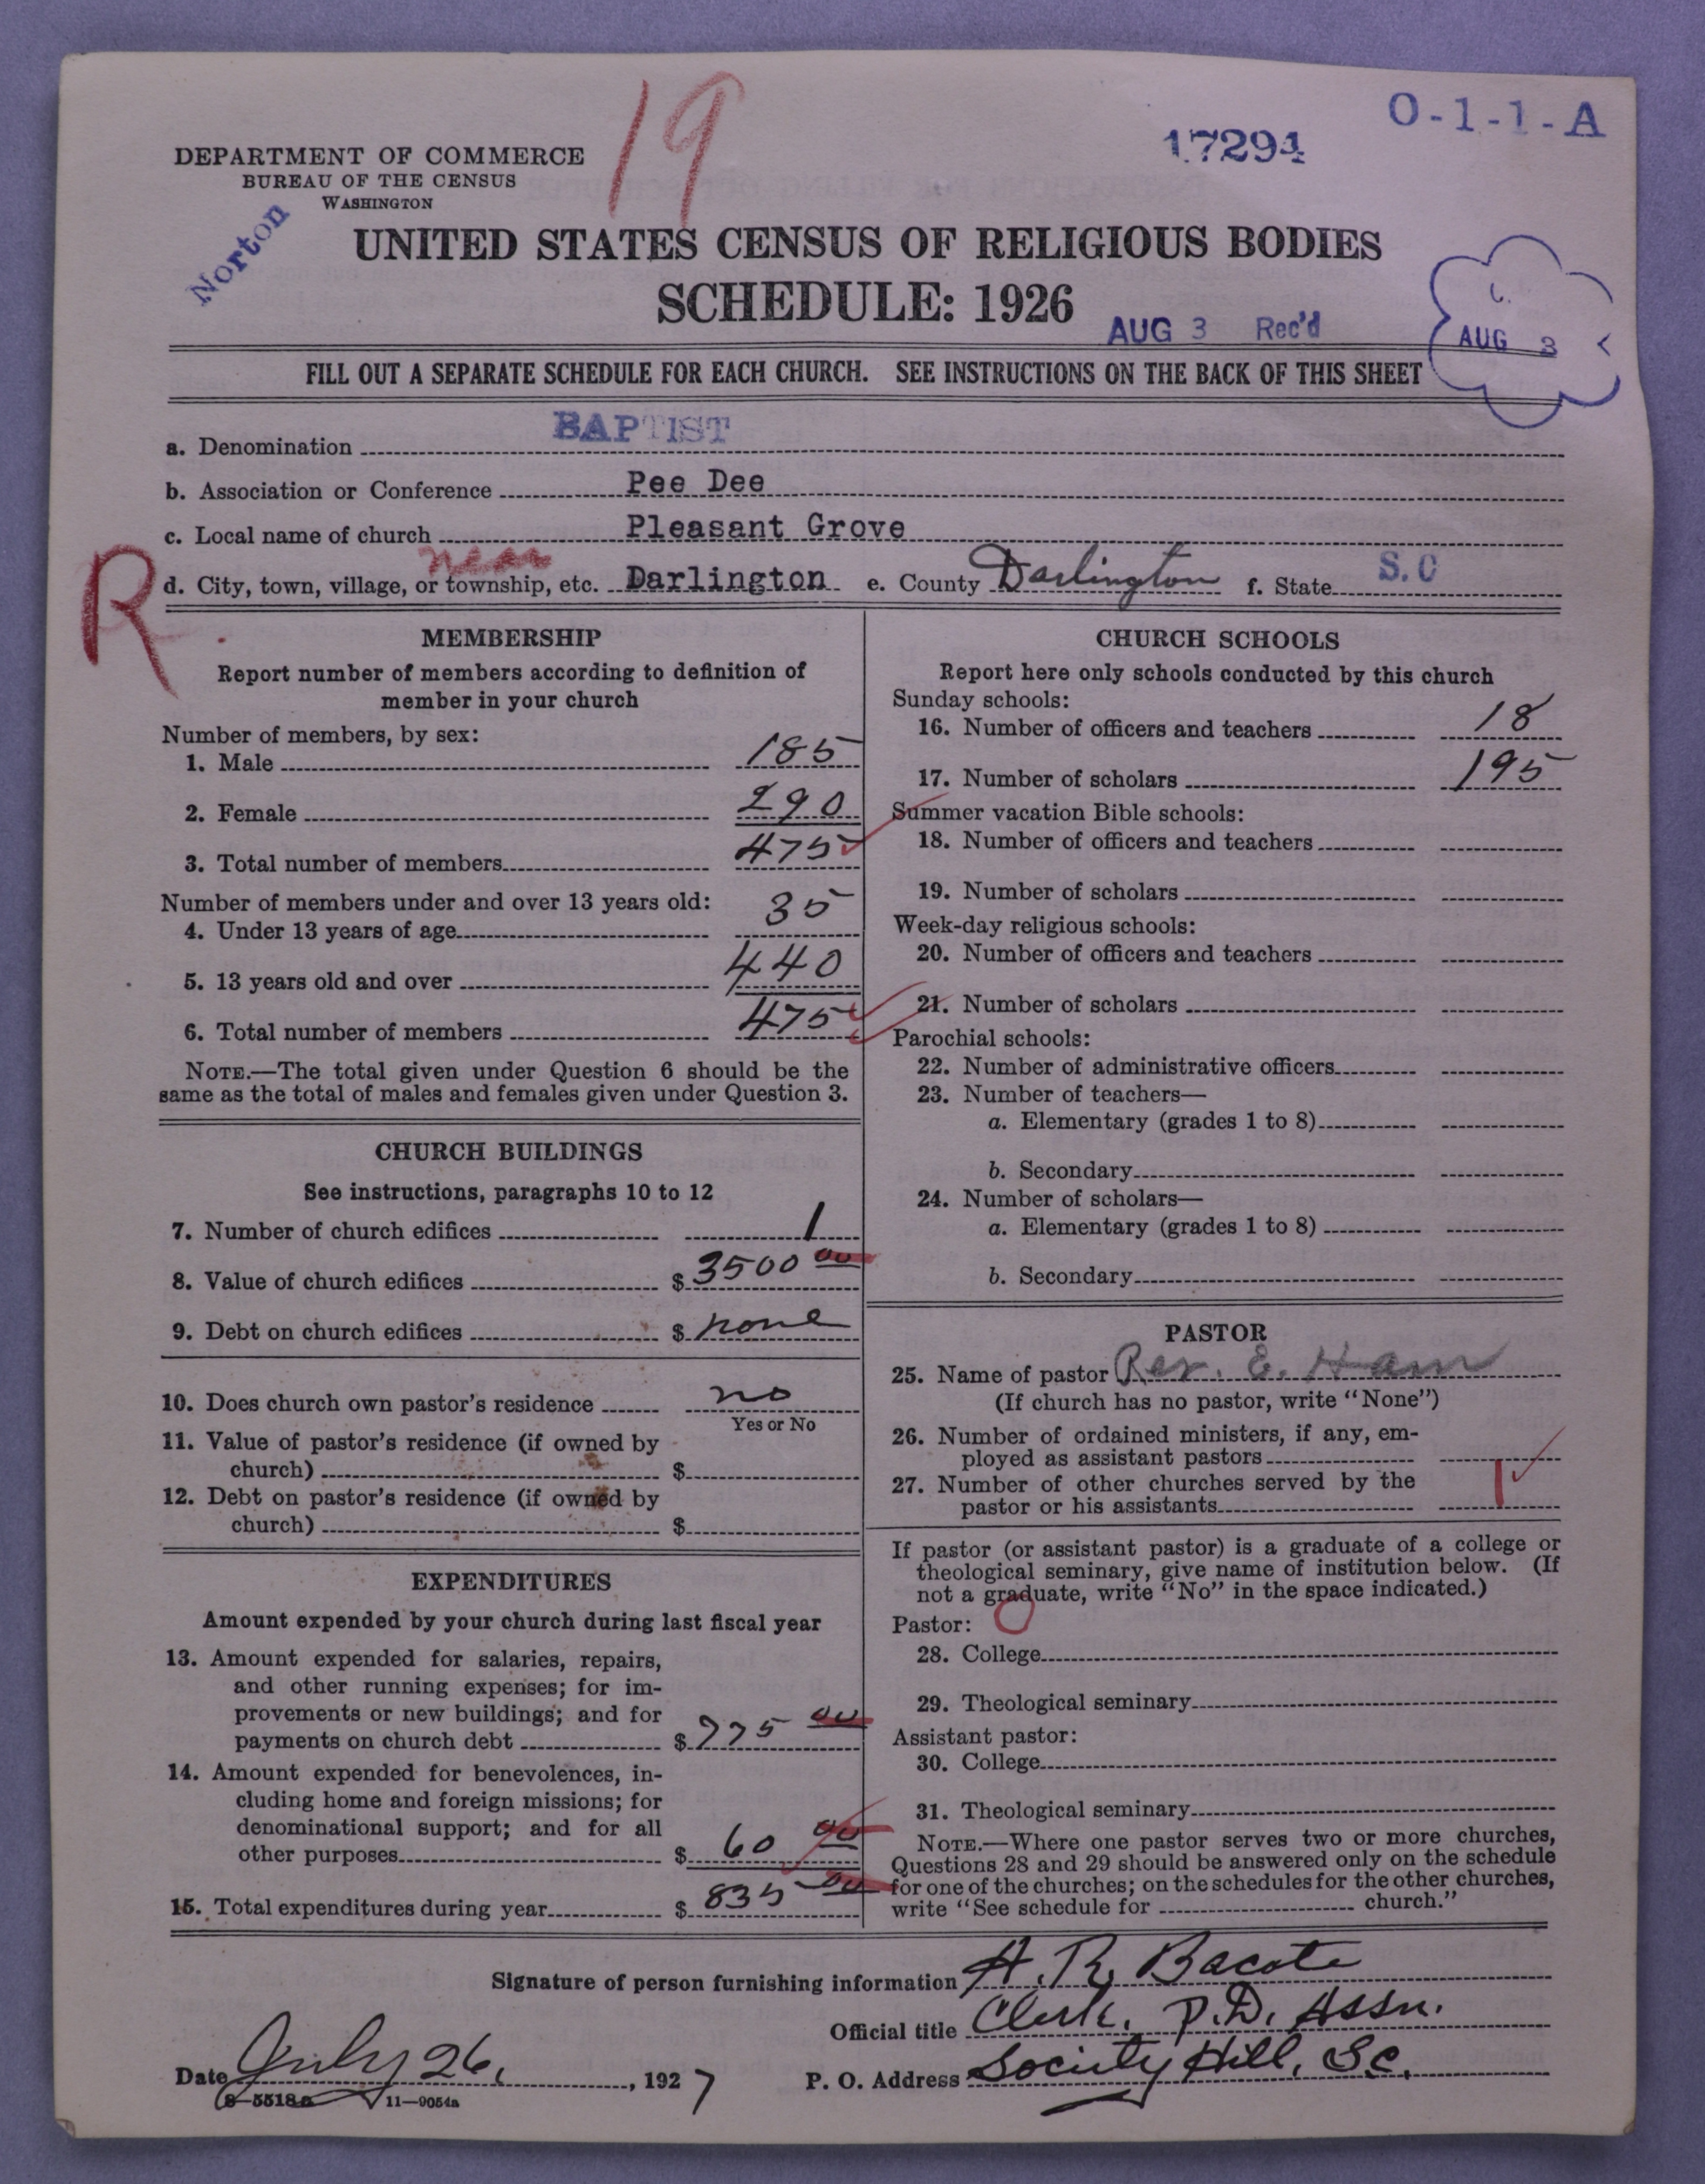 19
17294
O-1-1-A
DEPARTMENT OF COMMERCE
BUREAU OF THE CENSUS
WASHINGTON
Norton
UNITED STATES CENSUS OF RELIGIOUS BODIES
SCHEDULE: 1926
AUG 3 Rec'd
AUG 3
FILL OUT A SEPARATE SCHEDULE FOR EACH CHURCH. SEE INSTRUCTIONS ON THE BACK OF THIS SHEET
a. Denomination BAPTIST
b. Association or Conference Pee Dee
c. Local name of church Pleasant Grove
R
near
d. City, town, village, or township, etc. Darlington e. County Darlington f. State S.C
MEMBERSHIP
Report number of members according to definition of
member in your church
Number of members, by sex:
1. Male 185
2. Female 290
3. Total number of members 475
Number of members under and over 13 years old:
4. Under 13 years of age 35
5. 13 years old and over 440
6. Total number of members 475
NOTE.—The total given under Question 6 should be the
same as the total of males and females given under Question 3.
CHURCH BUILDINGS
See instructions, paragraphs 10 to 12
7. Number of church edifices 1
8. Value of church edifices $ 3500 00
9. Debt on church edifices $ none
10. Does church own pastor's residence no
Yes or No
11. Value of pastor's residence (if owned by
church) $
12. Debt on pastor's residence (if owned by
church) $
EXPENDITURES
Amount expended by your church during last fiscal year
13. Amount expended for salaries, repairs,
and other running expenses; for im-
provements or new buildings; and for
payments on church debt $ 775 00
14. Amount expended for benevolences, in-
cluding home and foreign missions; for
denominational support; and for all
other purposes $ 60 00
15. Total expenditures during year $ 835 00
CHURCH SCHOOLS
Report here only schools conducted by this church
Sunday schools:
16. Number of officers and teachers 18
17. Number of scholars 195
Summer vacation Bible schools:
18. Number of officers and teachers
19. Number of scholars
Week-day religious schools:
20. Number of officers and teachers
21. Number of scholars
Parochial schools:
22. Number of administrative officers
23. Number of teachers—
a. Elementary (grades 1 to 8)
b. Secondary
24. Number of scholars—
a. Elementary (grades 1 to 8)
b. Secondary
PASTOR
25. Name of pastor Rev. E. Ham
(If church has no pastor, write "None")
26. Number of ordained ministers, if any, em-
ployed as assistant pastors
27. Number of other churches served by the
pastor or his assistants 1
If pastor (or assistant pastor) is a graduate of a college or
theological seminary, give name of institution below. (If
not a graduate, write "No" in the space indicated.)
Pastor: O
28. College
29. Theological seminary
Assistant pastor:
30. College
31. Theological seminary
NOTE.—Where one pastor serves two or more churches,
Questions 28 and 29 should be answered only on the schedule
for one of the churches; on the schedules for the other churches,
write "See schedule for church."
Signature of person furnishing information H. R. Bacote
Official title Clerk. P.D. Assn.
Date July 26, 1927 P. O. Address Society Hill, S.C.
8—5518a 11—9054a